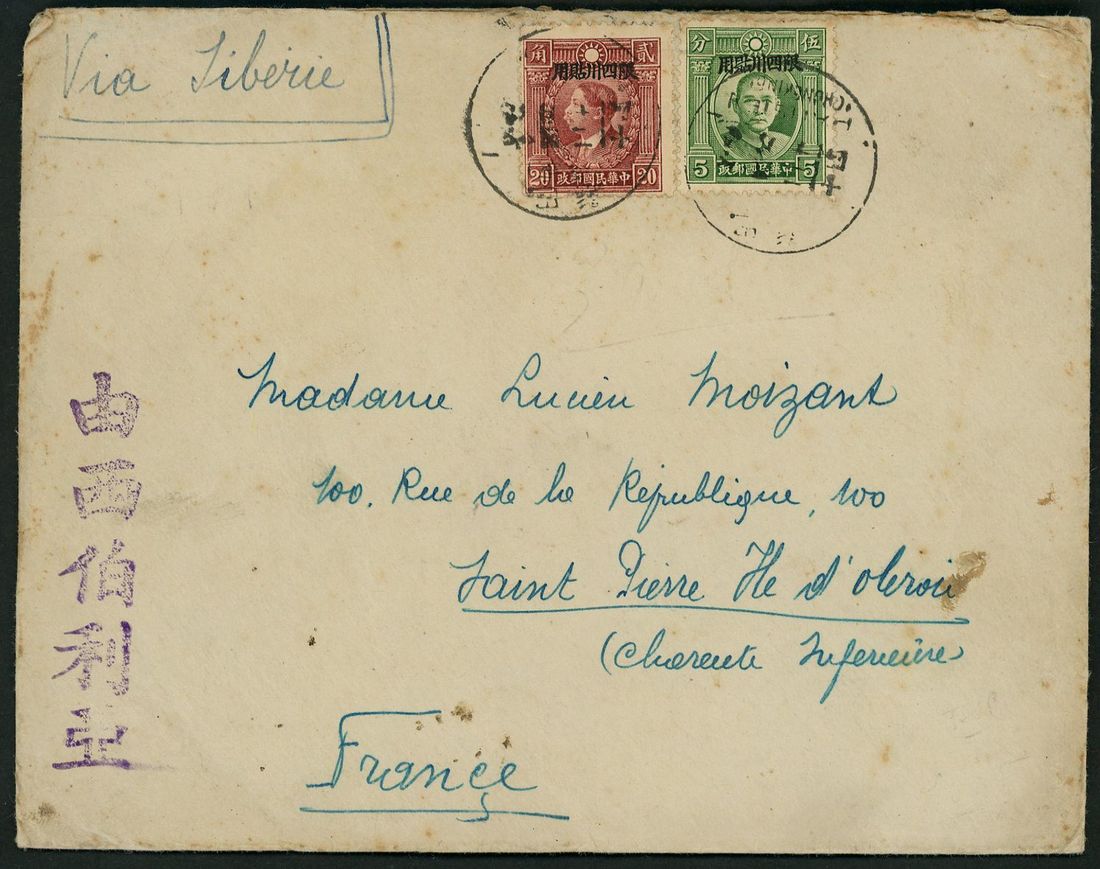 Via Sibérie
角 貳
限四川貼用
20 中華民國郵政 20
分 伍
限四川貼用
5 中華民國郵政 5
CHUNGKING
Madame Lucien Moizant
100. Rue de la République, 100
Saint Pierre Ile d'oleron
(Charente Inferieure
France
由西伯利亞